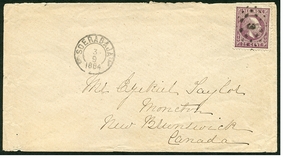 SOERABAJA
3
9
1884
Mr Ezekiel Taylor
Moncton
New Brunswick
Canada